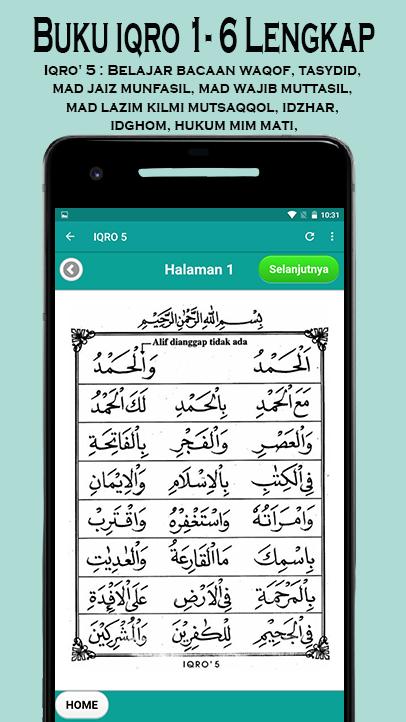 Buku iqro 1-6 Lengkap
Iqro' 5 : Belajar bacaan waqof, tasydid,
mad jaiz munfasil, mad wajib muttasil,
mad lazim kilmi mutsaqqol, idzhar,
idghom, hukum mim mati,
10:31
IQRO 5
Halaman 1
Selanjutnya
بِسْمِ اللهِ الرَّحْمٰنِ الرَّحِيْمِ
Alif dianggap tidak ada
اَلْحَمْدُ وَالْحَمْدُ
مَعَ الْحَمْدِ بِالْحَمْدِ لَكَ الْحَمْدُ
وَالْعَصْرِ وَالْفَجْرِ بِالْفَاتِحَةِ
فِى الْكِتٰبِ بِالْاِسْلَامِ وَالْاِيْمَانِ
وَامْرَاَتُهٗ وَاسْتَغْفِرْهُ وَاقْتَرِبْ
بِاسْمِكَ مَا الْقَارِعَةُ وَالْعٰدِيٰتِ
بِالْمَرْحَمَةِ فِى الْاَرْضِ عَلَى الْاَفْئِدَةِ
فِى الْجَحِيْمِ لِلْكٰفِرِيْنَ وَالْمُشْرِكِيْنَ
IQRO' 5
HOME